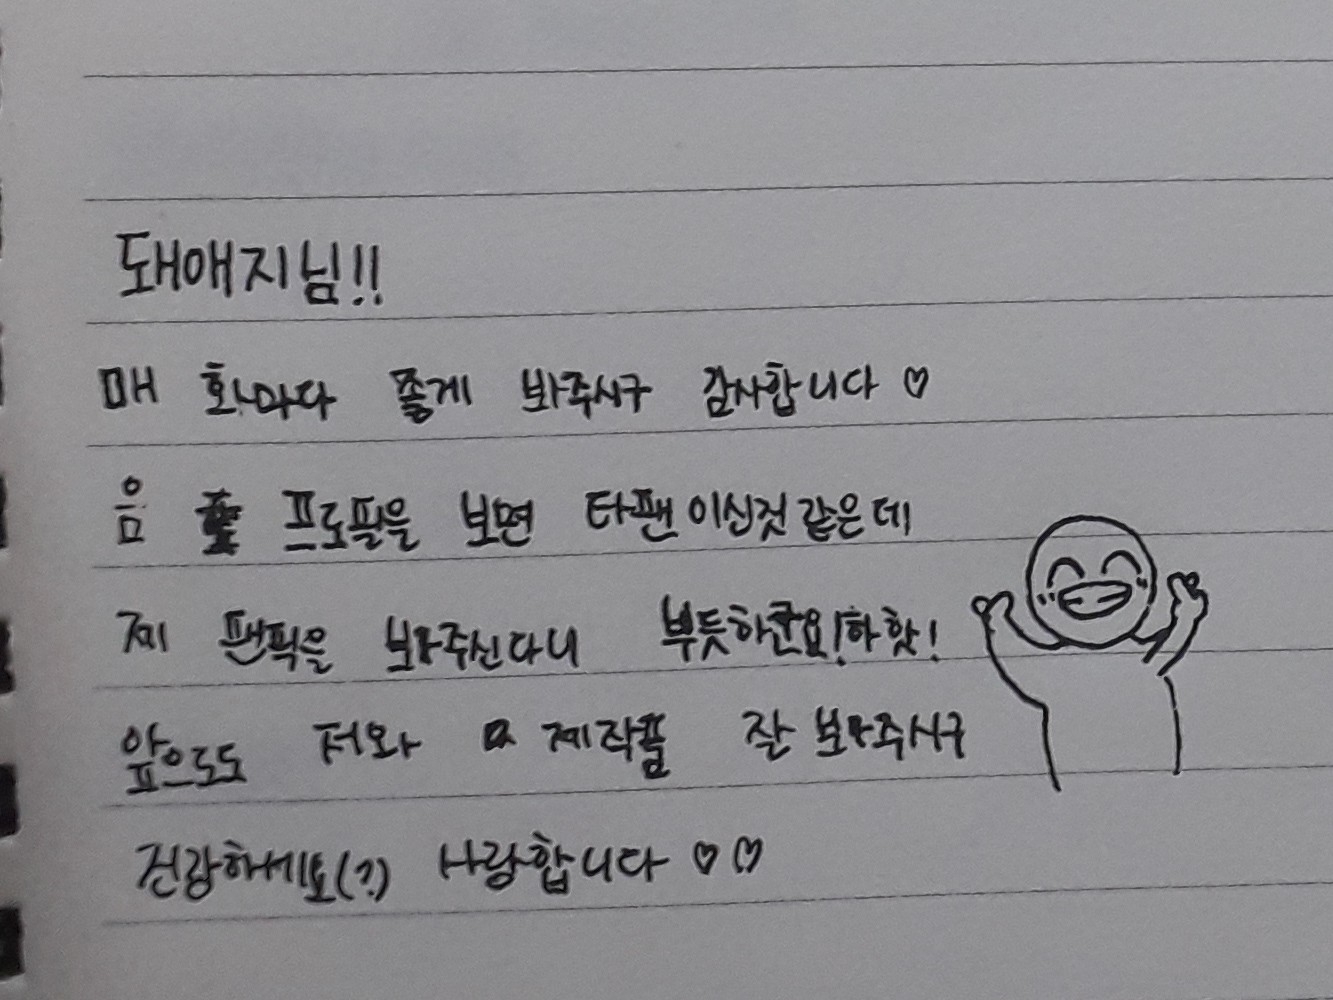 돼애지님!!
매 화마다 좋게 봐주시구 감사합니다 ♡
음 프로필을 보면 타팬이신것같은데
제 팬픽을 봐주신다니 뿌듯하군요! 하핫!
앞으로도 저와 제작품 잘 봐주시구
건강하세토(?) 사랑합니다 ♡♡